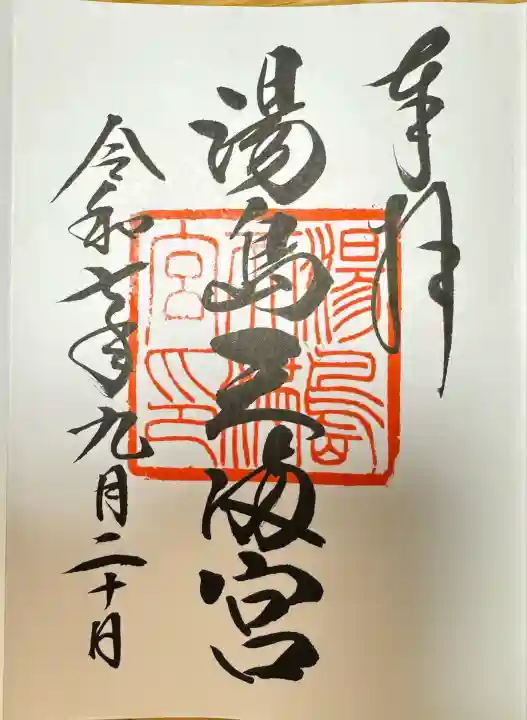 奉拝
湯島天満宮
令和七年九月二十日
湯島
天満
宮印